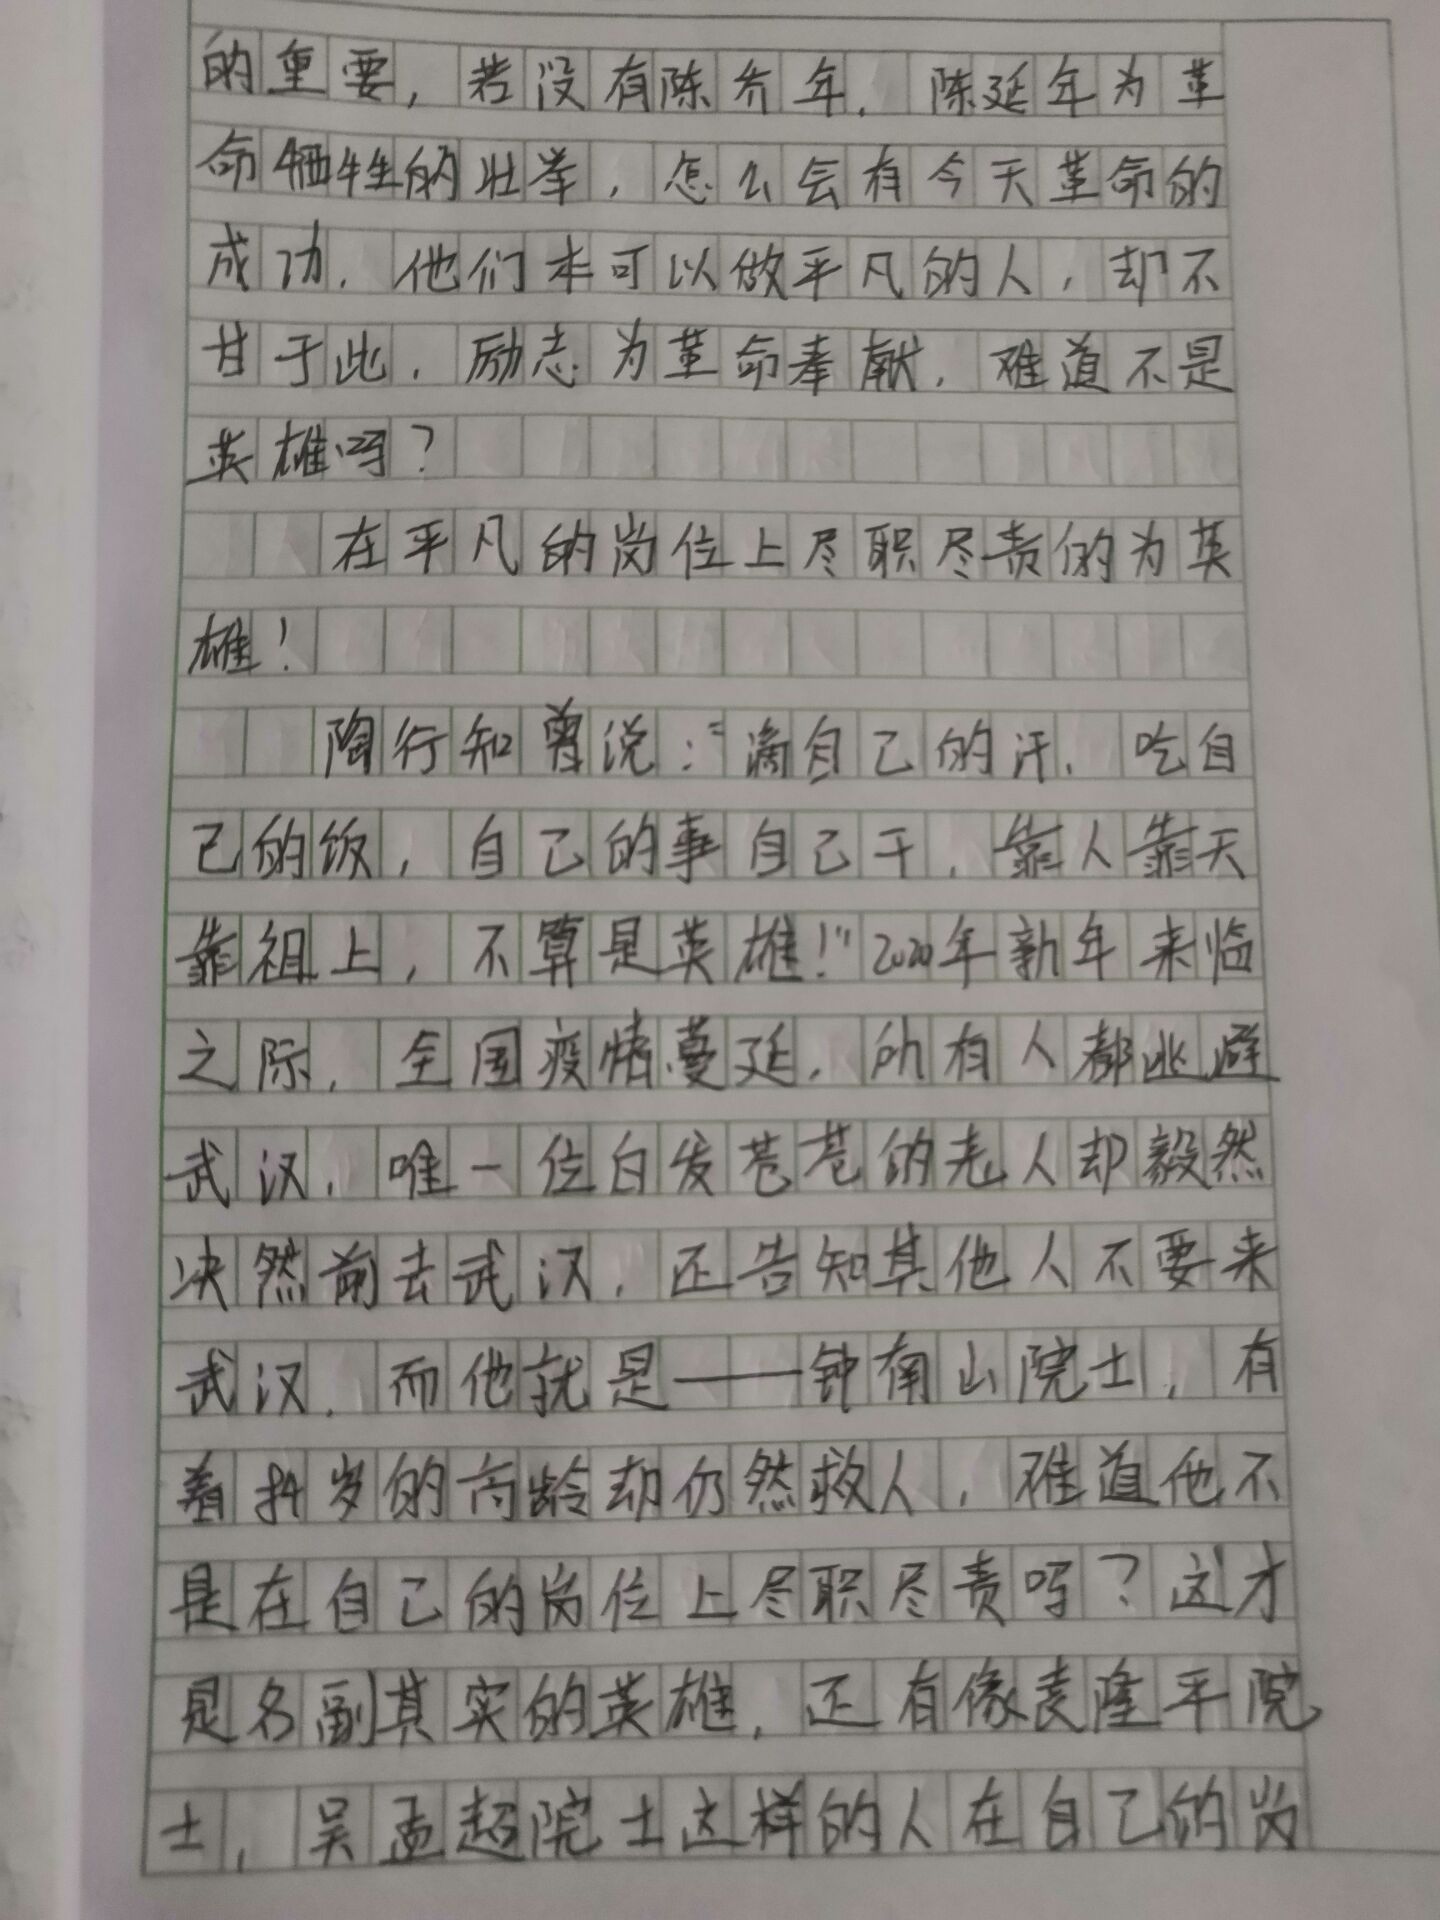 的重要，若没有陈乔年，陈延年为革
命牺牲的壮举，怎么会有今天革命的
成功，他们本可以做平凡的人，却不
甘于此，励志为革命奉献，难道不是
英雄吗？
在平凡的岗位上尽职尽责的为英
雄！
陶行知曾说：“滴自己的汗，吃自
己的饭，自己的事自己干，靠人靠天
靠祖上，不算是英雄！”2020年新年来临
之际，全国疫情蔓延，所有人都逃避
武汉，唯一位白发苍苍的老人却毅然
决然前去武汉，还告知其他人不要来
武汉，而他就是——钟南山院士，有
着84岁的高龄却仍然救人，难道他不
是在自己的岗位上尽职尽责吗？这才
是名副其实的英雄，还有像袁隆平院
士，吴孟超院士这样的人在自己的岗